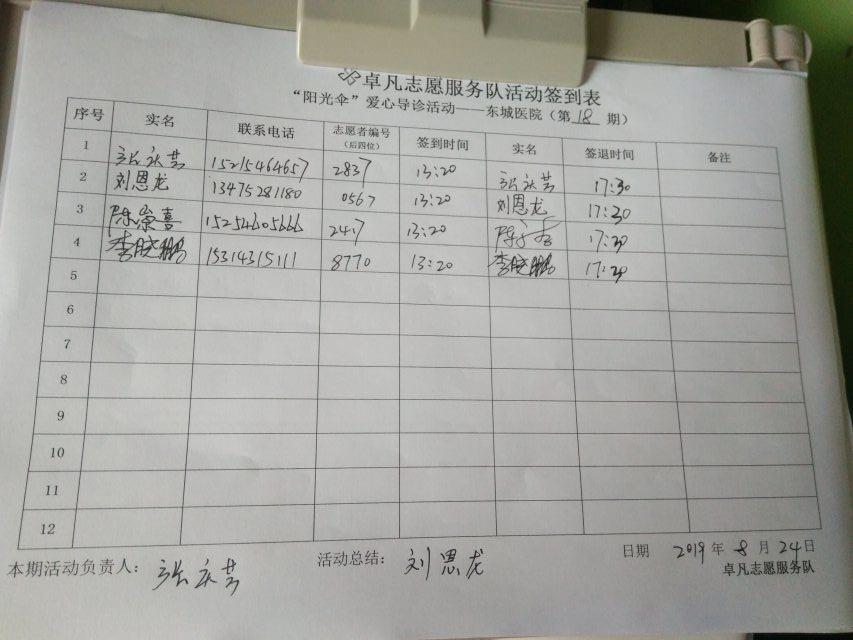 卓凡志愿服务队活动签到表
“阳光伞”爱心导诊活动——东城医院（第18期）
序号 实名 联系电话 志愿者编号（后四位） 签到时间 实名 签退时间 备注
1 张庆芸 15215464657 2837 13:20 张庆芸 17:30
2 刘恩龙 13475281180 0567 13:20 刘恩龙 17:20
3 陈崇喜 15254605666 2417 13:20 17:20
4 李晓鹏 15314315111 8770 13:20 李晓鹏 17:20
5
6
7
8
9
10
11
12
本期活动负责人： 张庆芸 活动总结： 刘恩龙 日期 2019年8月24日
卓凡志愿服务队